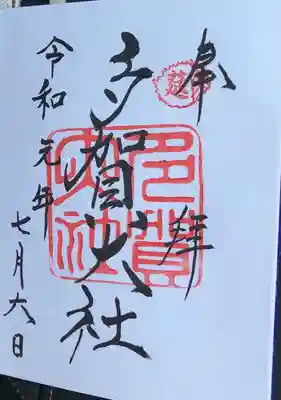 奉拜
多賀大社
令和元年七月六日
多賀大社